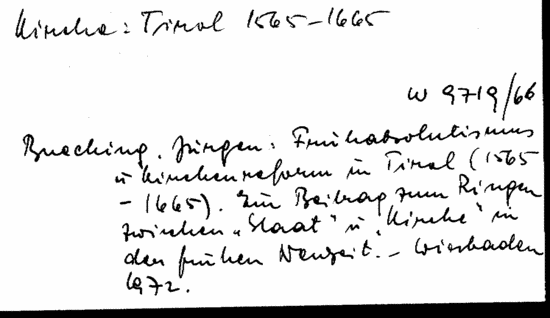 Kirche: Tirol 1565-1665
W 9719/66
Buecking, Jürgen: Frühabsolutismus
u Kirchenreform in Tirol (1565
- 1665). Ein Beitrag zum Ringen
zwischen "Staat" u "Kirche" in
der frühen Neuzeit. - Wiesbaden
1972.